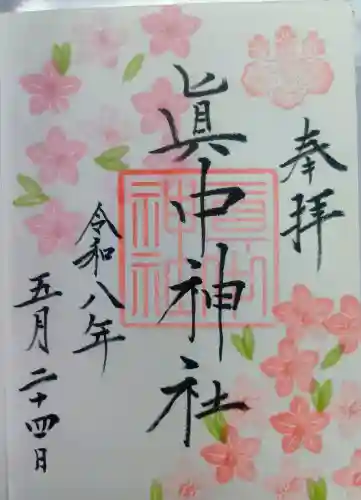 奉拝
眞中神社
令和八年
五月二十四日